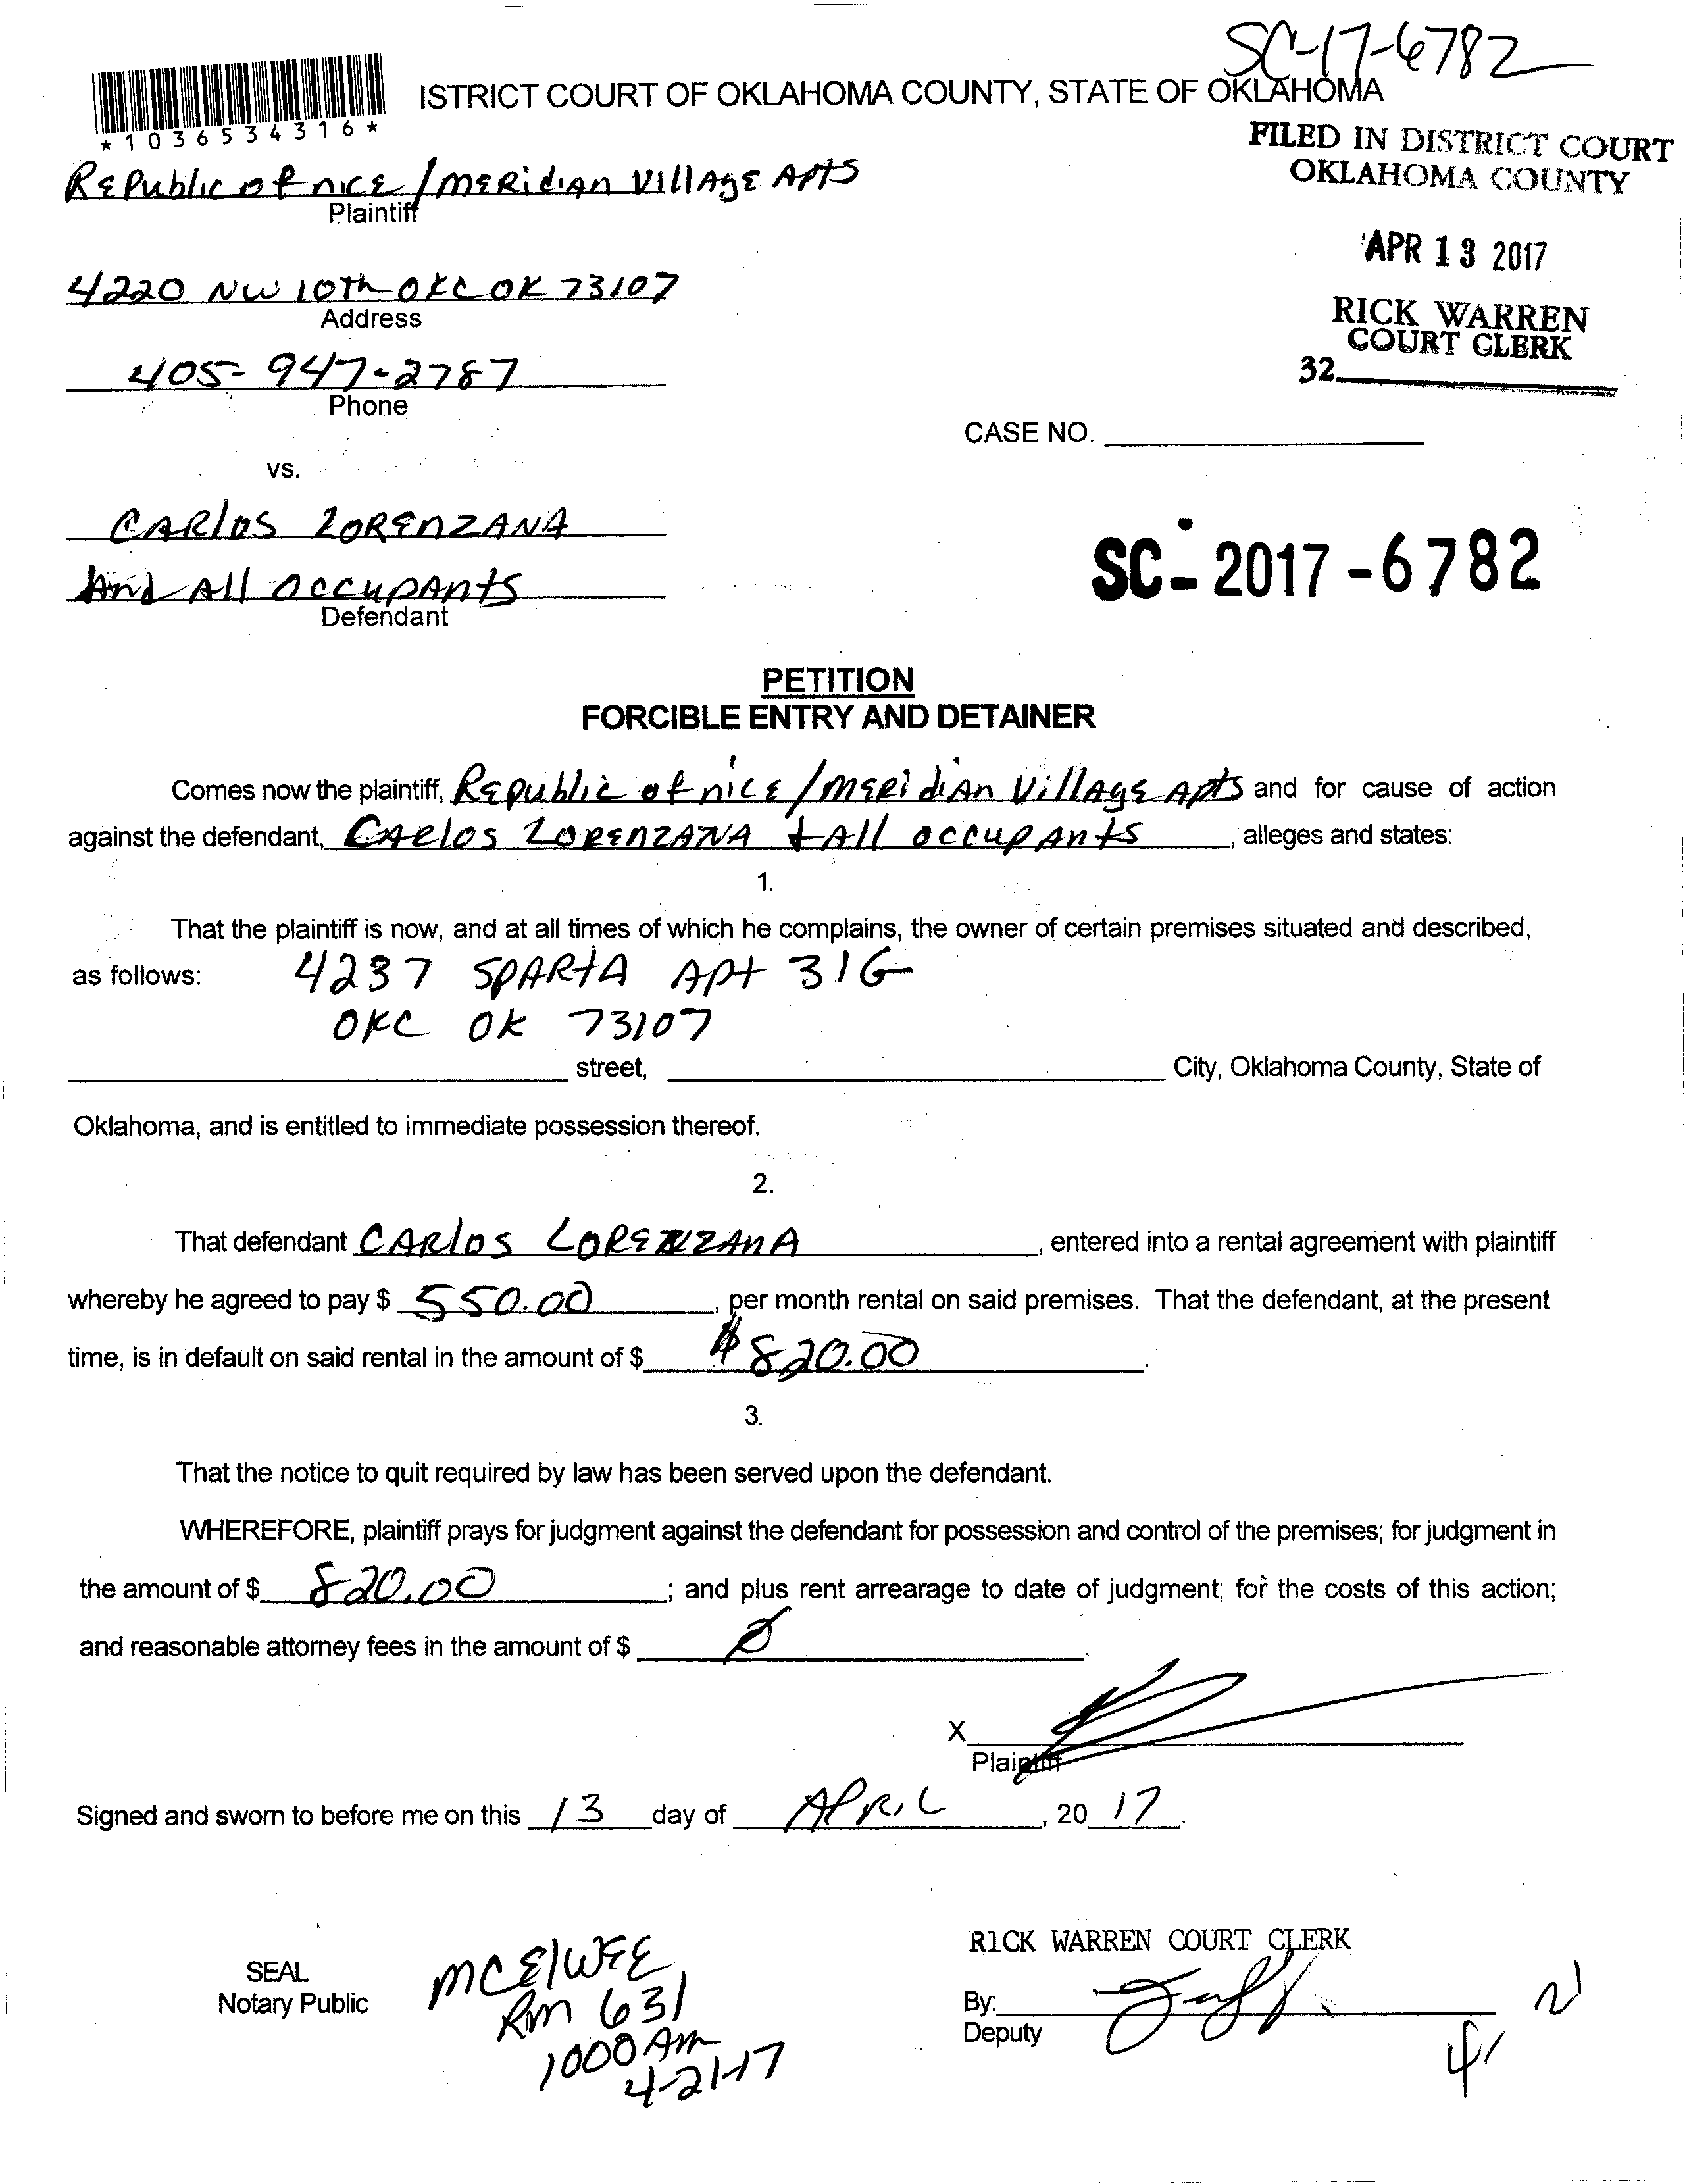 SC-17-6782
ISTRICT COURT OF OKLAHOMA COUNTY, STATE OF OKLAHOMA
*1036534316*
FILED IN DISTRICT COURT
OKLAHOMA COUNTY
Republic of nice / Meridian Village Apts
Plaintiff
APR 13 2017
4220 NW 10th OKC OK 73107
Address
RICK WARREN
COURT CLERK
32
405-947-2787
Phone
CASE NO.
vs.
Carlos Lorenzana
And All Occupants
Defendant
SC-2017-6782
PETITION
FORCIBLE ENTRY AND DETAINER
Comes now the plaintiff, Republic of nice / Meridian Village Apts and for cause of action
against the defendant, Carlos Lorenzana + All occupants, alleges and states:
1.
That the plaintiff is now, and at all times of which he complains, the owner of certain premises situated and described,
as follows: 4237 Sparta Apt 31G
OKC OK 73107
street, City, Oklahoma County, State of
Oklahoma, and is entitled to immediate possession thereof.
2.
That defendant Carlos Lorenzana, entered into a rental agreement with plaintiff
whereby he agreed to pay $ 550.00, per month rental on said premises. That the defendant, at the present
time, is in default on said rental in the amount of $ $820.00.
3.
That the notice to quit required by law has been served upon the defendant.
WHEREFORE, plaintiff prays for judgment against the defendant for possession and control of the premises; for judgment in
the amount of $ 820.00; and plus rent arrearage to date of judgment; for the costs of this action;
and reasonable attorney fees in the amount of $ Ø.
X
Plaintiff
Signed and sworn to before me on this 13 day of April, 20 17.
RICK WARREN COURT CLERK
SEAL
Notary Public
McElwee
Rm 631
1000 Am
4-21-17
By:
Deputy